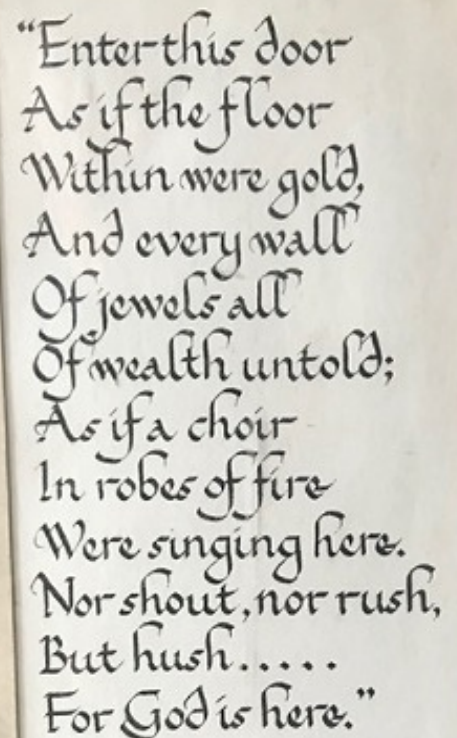 “Enter this door
As if the floor
Within were gold,
And every wall
Of jewels all
Of wealth untold;
As if a choir
In robes of fire
Were singing here.
Nor shout, nor rush,
But hush.....
For God is here.”